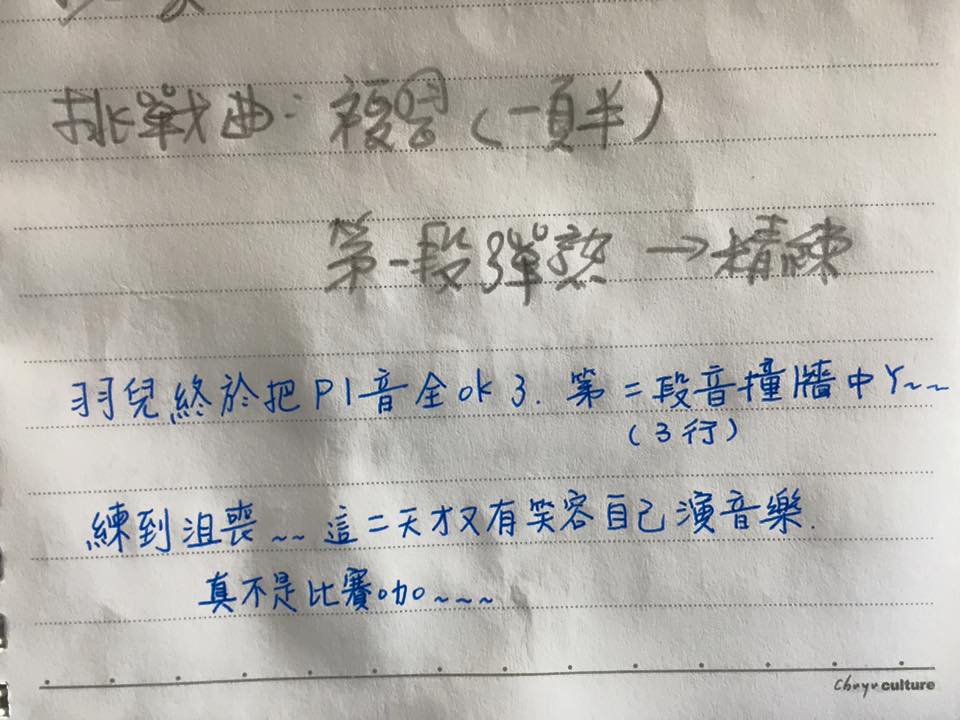 挑戰曲：複習（一頁半）
第一段彈熟→精練
羽兒終於把P1音全ok 3. 第二段音撞牆中ㄚ~~
(3行)
練到沮喪~~這二天才又有笑容自己演音樂.
真不是比賽咖~~~
culture